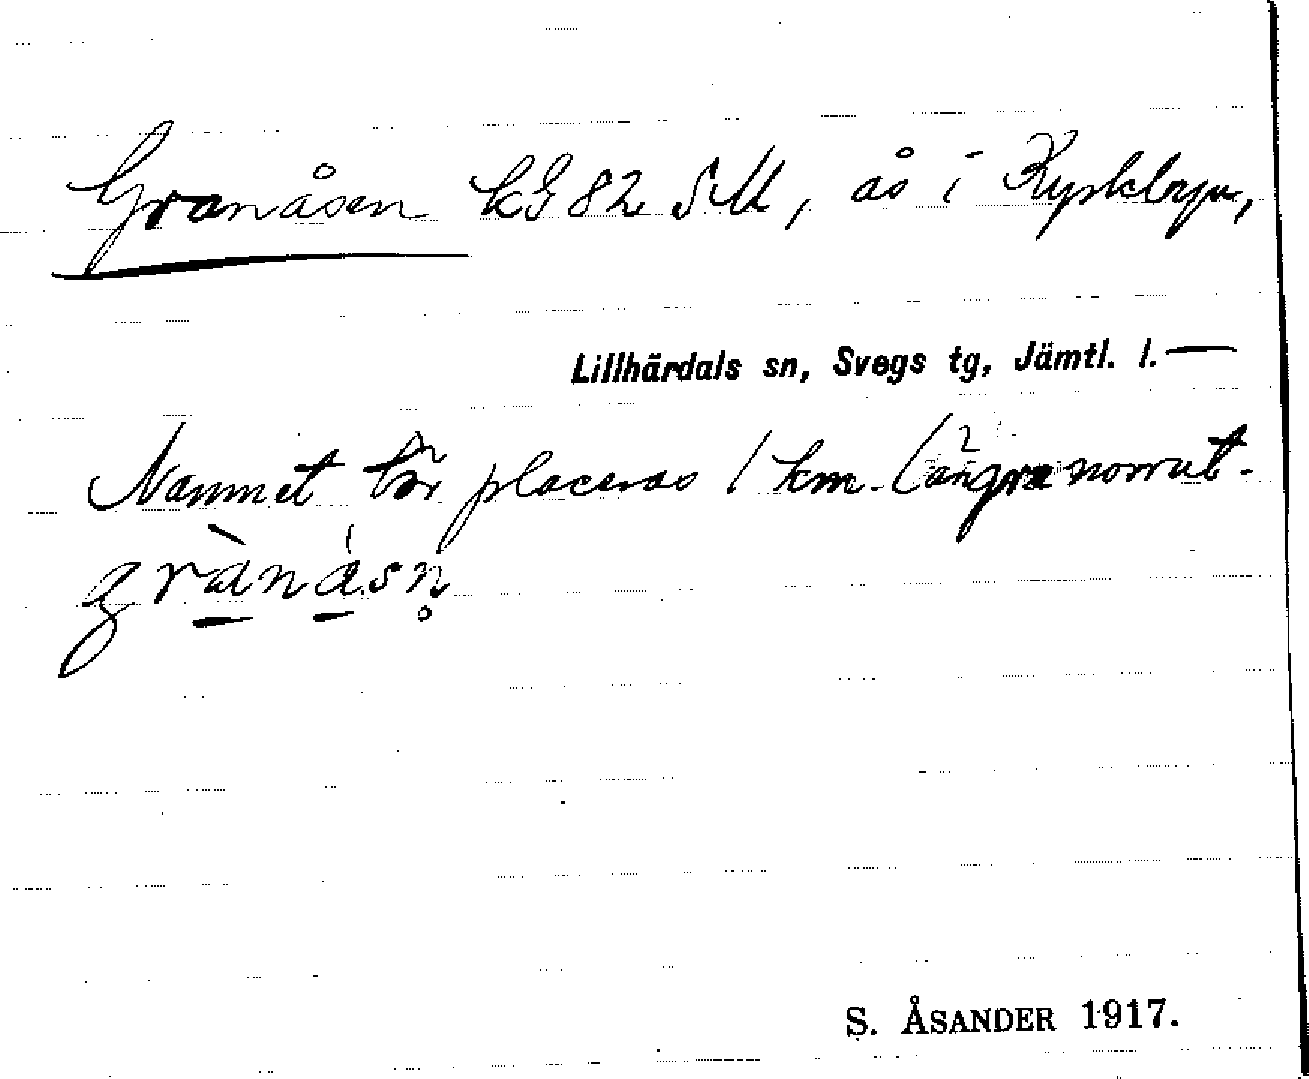 Granåsen kG 82 SU, ås i Kyrkbyn,
Lillhärdals sn, Svegs tg, Jämtl. l.—
Namnet bör placeras 1 km. längre norrut.
grànásn̥
S. ÅSANDER 1917.